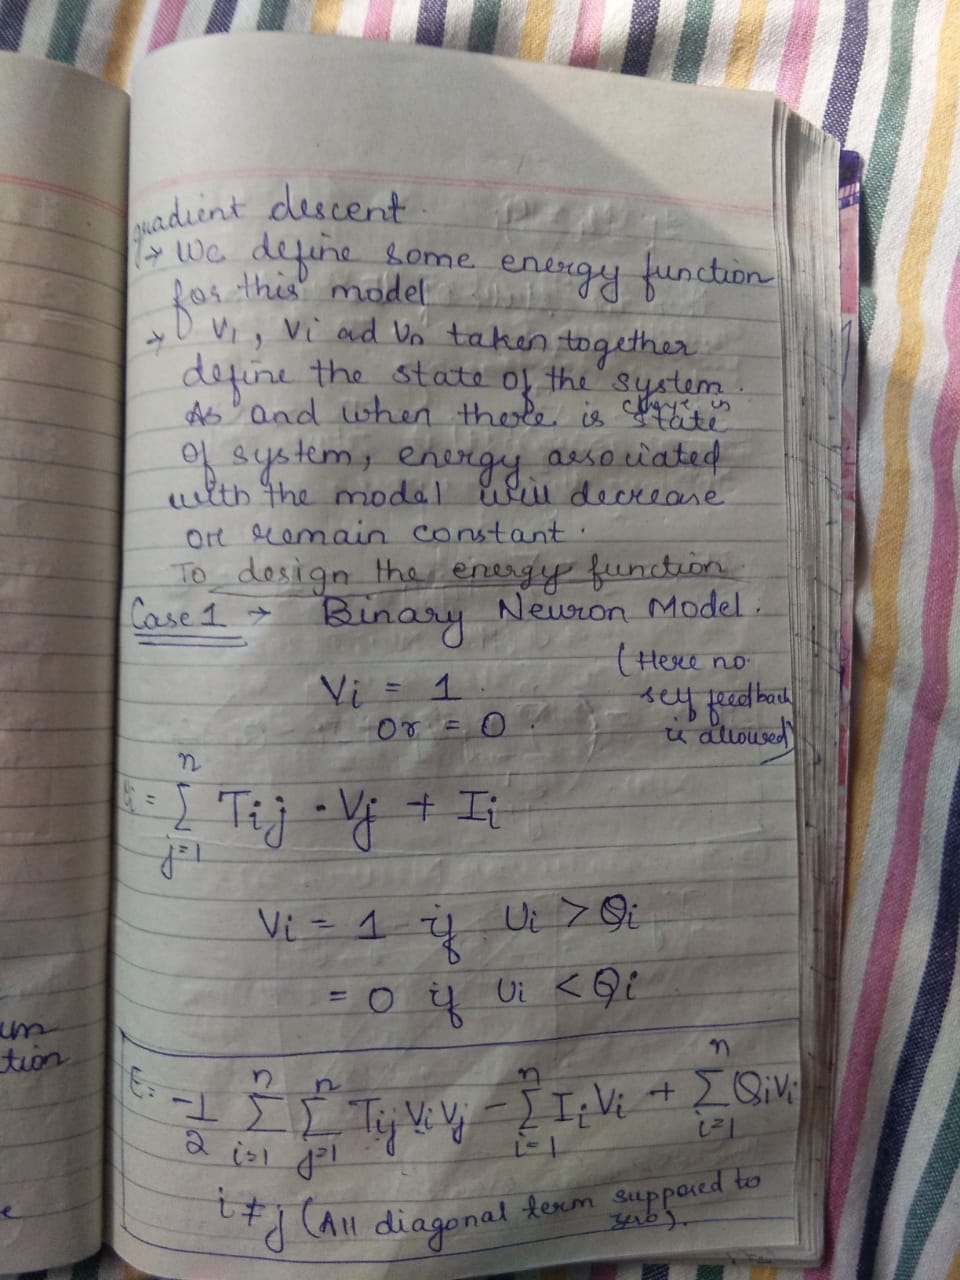 gradient descent.
→ We define some energy function
for this model
→ V₁, Vi ad Vn taken together
define the state of the system.
As and when there is change in state
of system, energy associated
with the model will decrease
or remain constant.
To design the energy function
Case 1 → Binary Neuron Model.
(Here no
self feedback
is allowed)
Vi = 1.
or = 0.
Ui = n Σ j=1 Tij . Vj + Ii
Vi = 1 if Ui > Θi
= 0 if Ui < Θi
E = -1/2 n Σ i=1 n Σ j=1 Tij Vi Vj - n Σ i=1 Ii Vi + n Σ i=1 Θi Vi
i ≠ j (All diagonal term supposed to zero).
um
tion
e